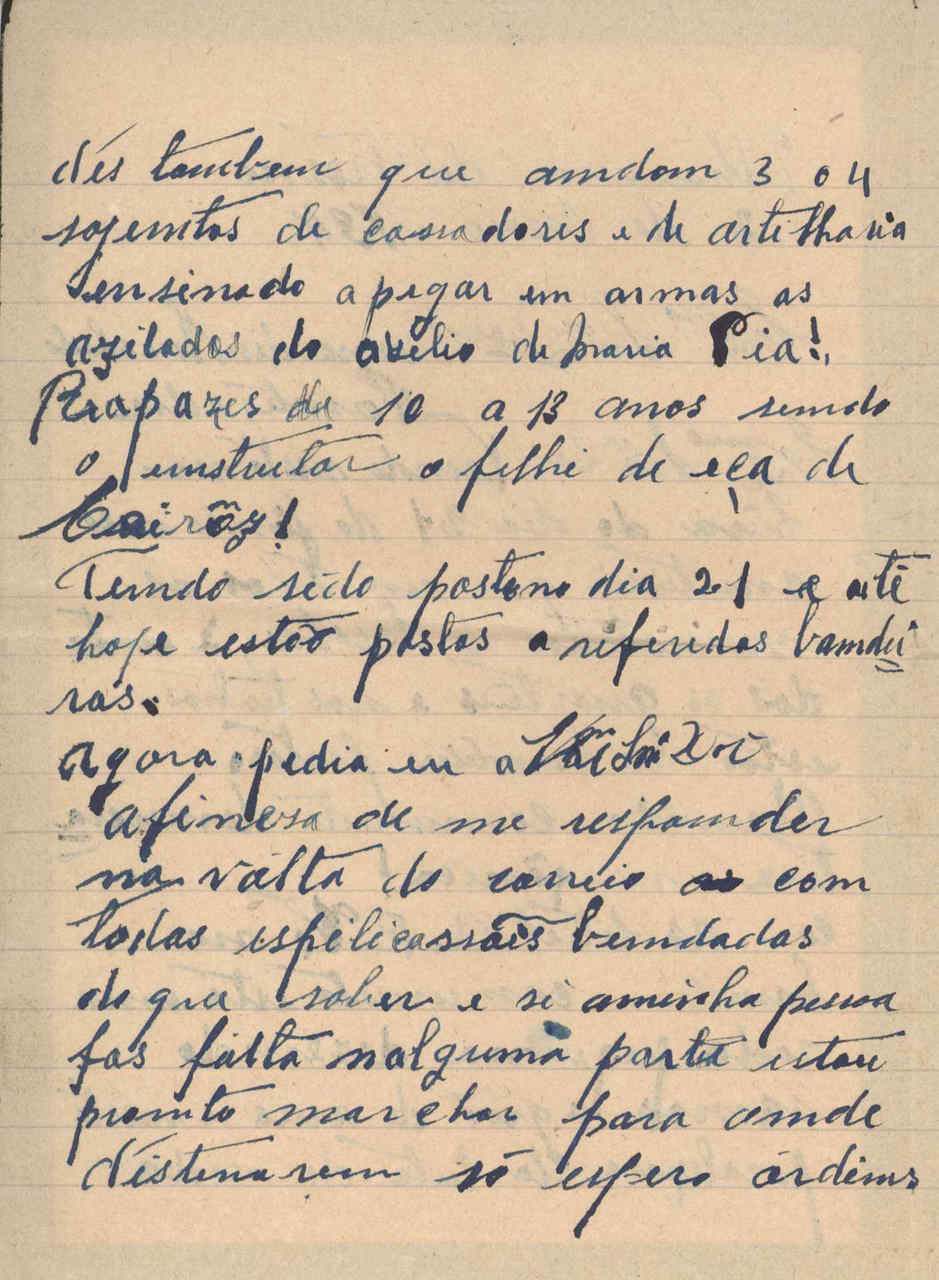 dis tambem que amdam 3 o 4
sojemtos de cassadores e de artelharia
ensinado a pegar em armas os
azilados do azilio de Maria Pia!
Rapazes de 10 a 13 anos semdo
o emstrutor o filhe de eça de
Cairõz!
Temdo sido posto no dia 21 e atê
hoje estão postos a referidas bamdei
ras.
agora pedia eu a
afinesa de me respomder
na válta do correio com
todas espelicassõeis bemdadas
do que sober e si aminha pessoa
fas fálta nalguma parte estou
promto marchar para omde
distenarem só espero órdems